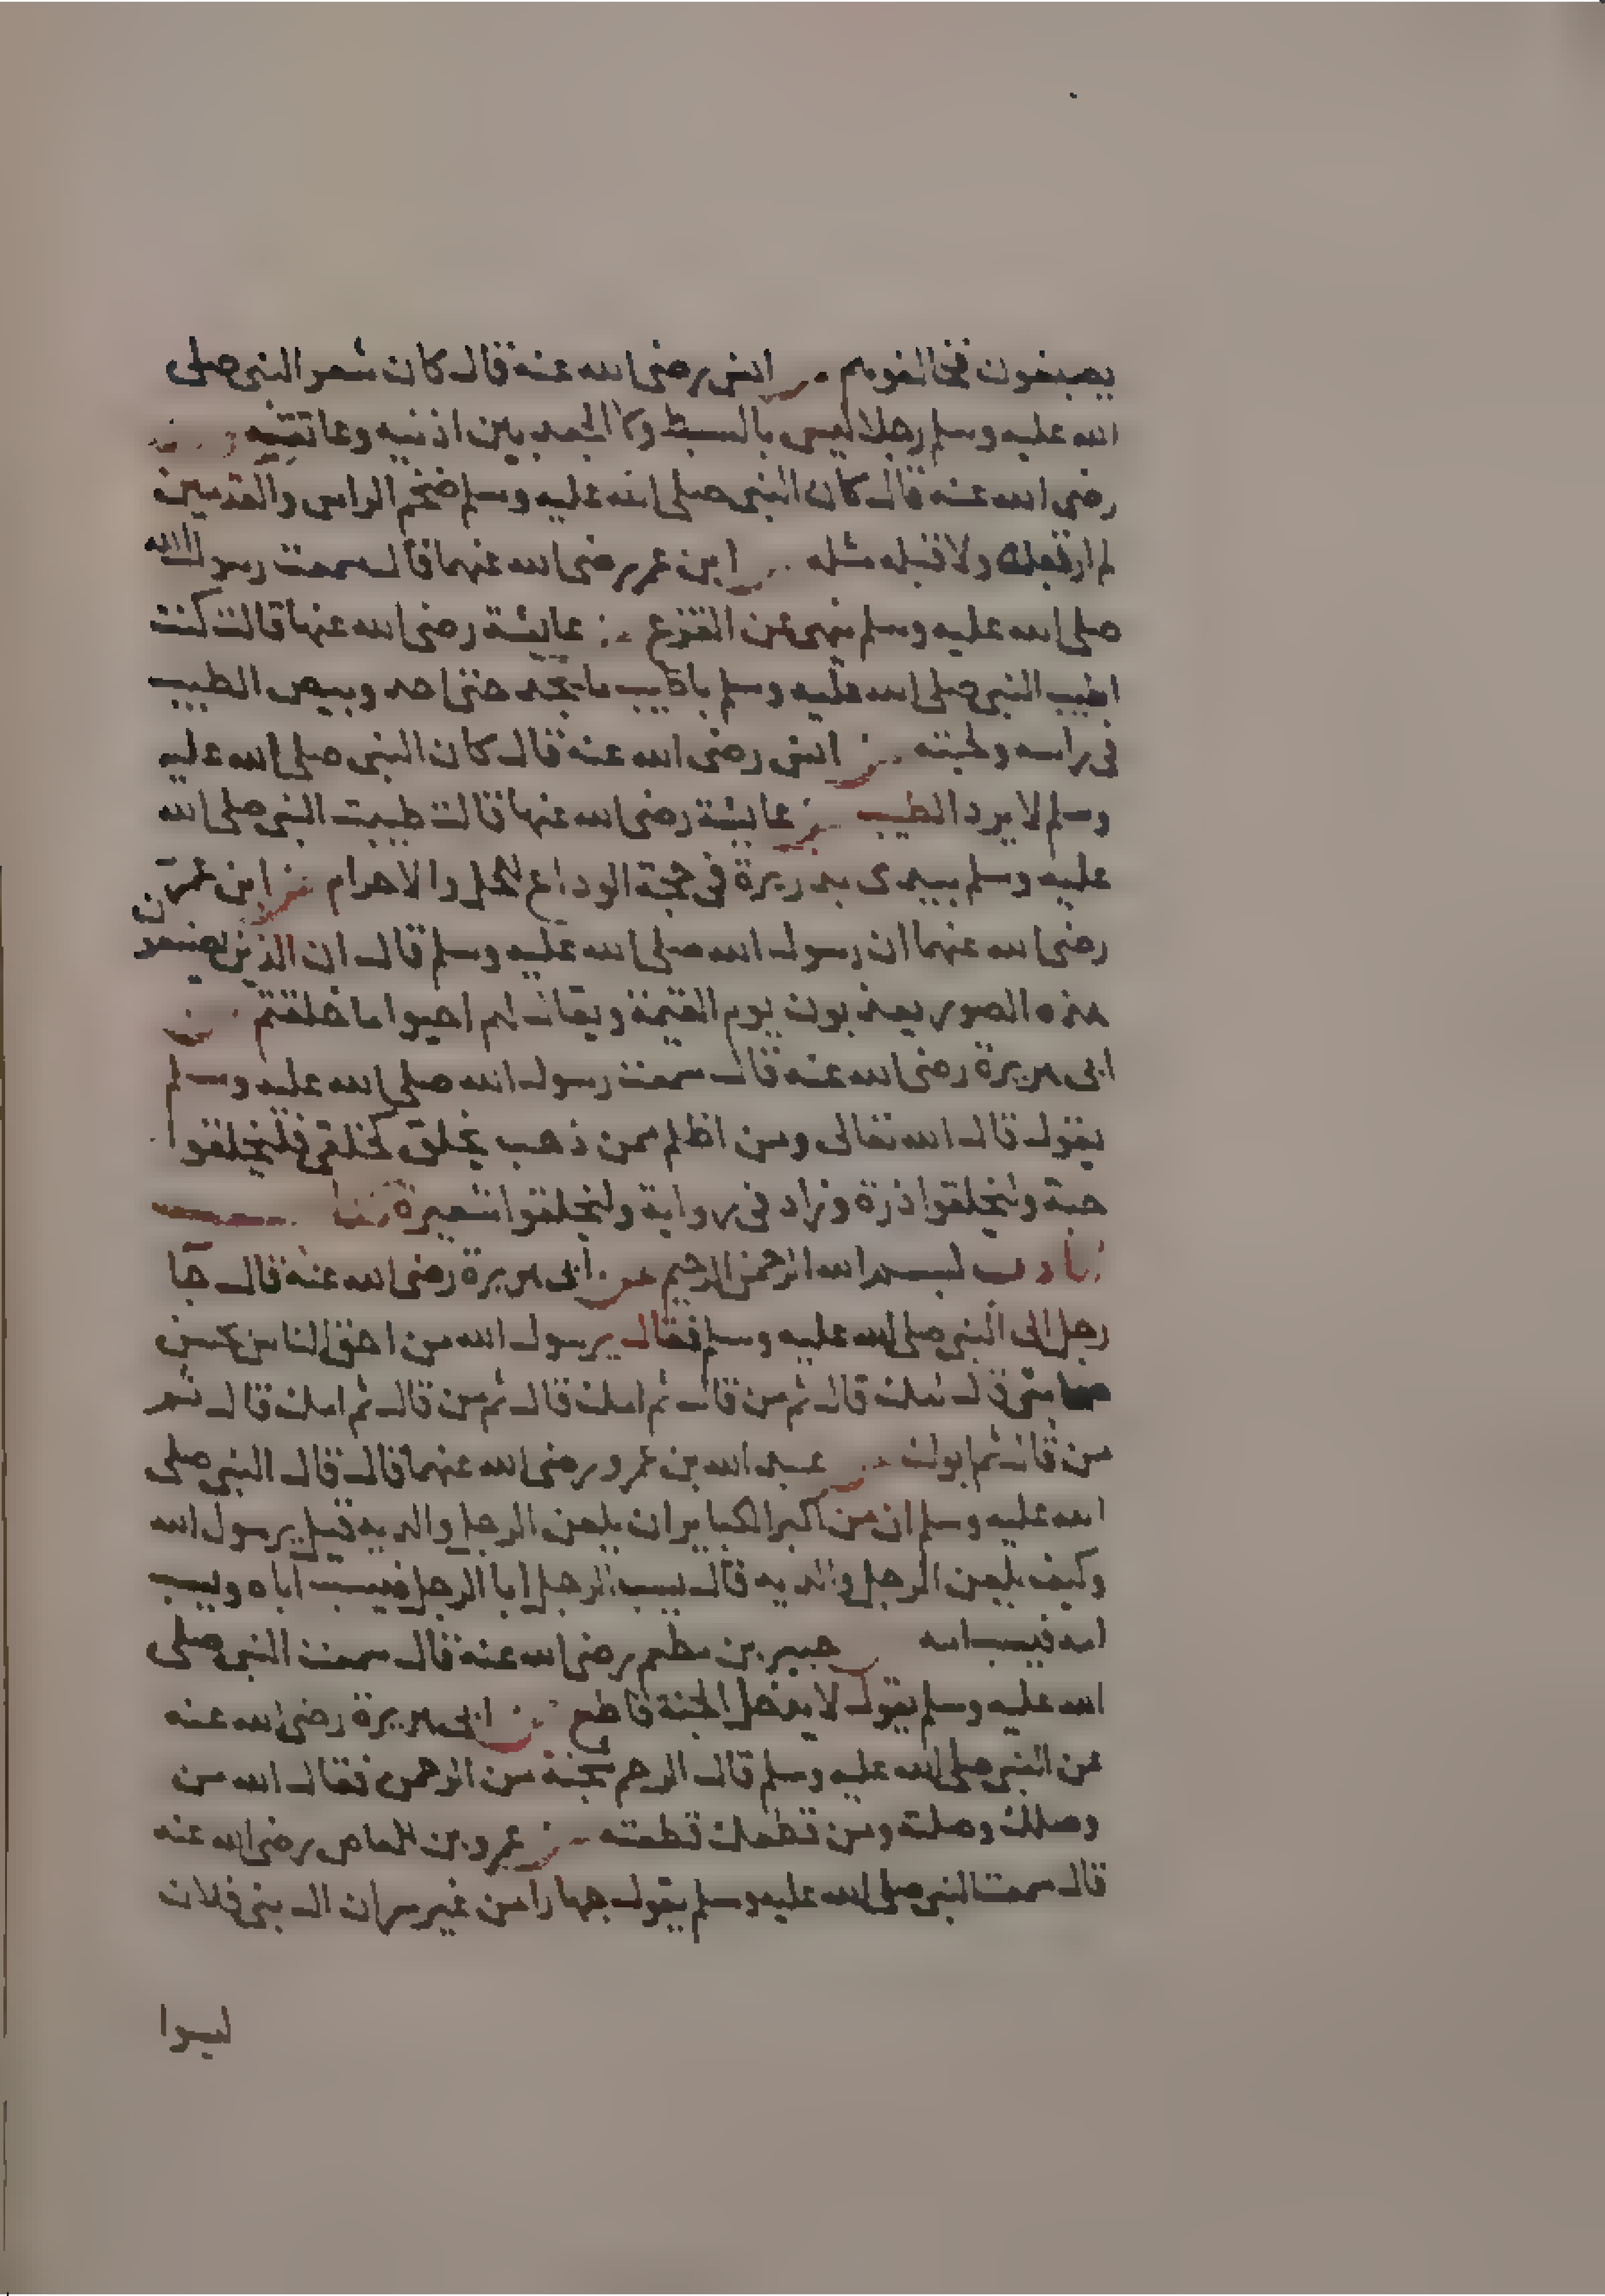 يصبغون فخالفوهم عن انس رضى الله عنه قال كان شعر النبى صلى
الله عليه وسلم رجلا ليس بالسبط ولا الجعد بين اذنيه وعاتقيه
رضى الله عنه قال كان النبى صلى الله عليه وسلم ضخم الراس والقدمين
لم ار بعده ولا قبله مثله عن ابن عمر رضى الله عنهما قال سمعت رسول الله
صلى الله عليه وسلم ينهى عن القزع عن عايشة رضى الله عنها قالت كنت
اطيب النبى صلى الله عليه وسلم باطيب ما يجد حتى اجد وبيص الطيب
فى راسه ولحيته عن انس رضى الله عنه قال كان النبى صلى الله عليه
وسلم لا يرد الطيب عن عايشة رضى الله عنها قالت طيبت النبى صلى الله
عليه وسلم بيدى بذريرة فى حجة الوداع للحل والاحرام عن ابن عمر
رضى الله عنهما ان رسول الله صلى الله عليه وسلم قال ان الذين يصنعون
هذه الصور يعذبون يوم القيمة ويقال لهم احيوا ما خلقتم عن
ابى هريرة رضى الله عنه قال سمعت رسول الله صلى الله عليه وسلم
يقول قال الله تعالى ومن اظلم ممن ذهب يخلق كخلقى فليخلقوا
حبة وليخلقوا ذرة وزاد فى رواية وليخلقوا شعيرة
بسم الله الرحمن الرحيم عن ابى هريرة رضى الله عنه قال جا
رجل الى النبى صلى الله عليه وسلم فقال يرسول الله من احق الناس بحسن
صحابتى قال امك قال ثم من قال ثم امك قال ثم من قال ثم امك قال ثم
من قال ثم ابوك عن عبد الله بن عمرو رضى الله عنهما قال قال النبى صلى
الله عليه وسلم ان من اكبر الكباير ان يلعن الرجل والديه قيل يرسول الله
وكيف يلعن الرجل والديه قال يسب الرجل ابا الرجل فيسب اباه ويسب
امه فيسب امه عن جبير بن مطعم رضى الله عنه قال سمعت النبى صلى
الله عليه وسلم يقول لا يدخل الجنة قاطع عن ابى هريرة رضى الله عنه
عن النبى صلى الله عليه وسلم قال الرحم شجنة من الرحمن فقال الله من
وصلك وصلته ومن قطعك قطعته عن عمرو بن العاص رضى الله عنه
قال سمعت النبى صلى الله عليه وسلم يقول جهارا من غير سر ان ال بنى فلان
ليسوا